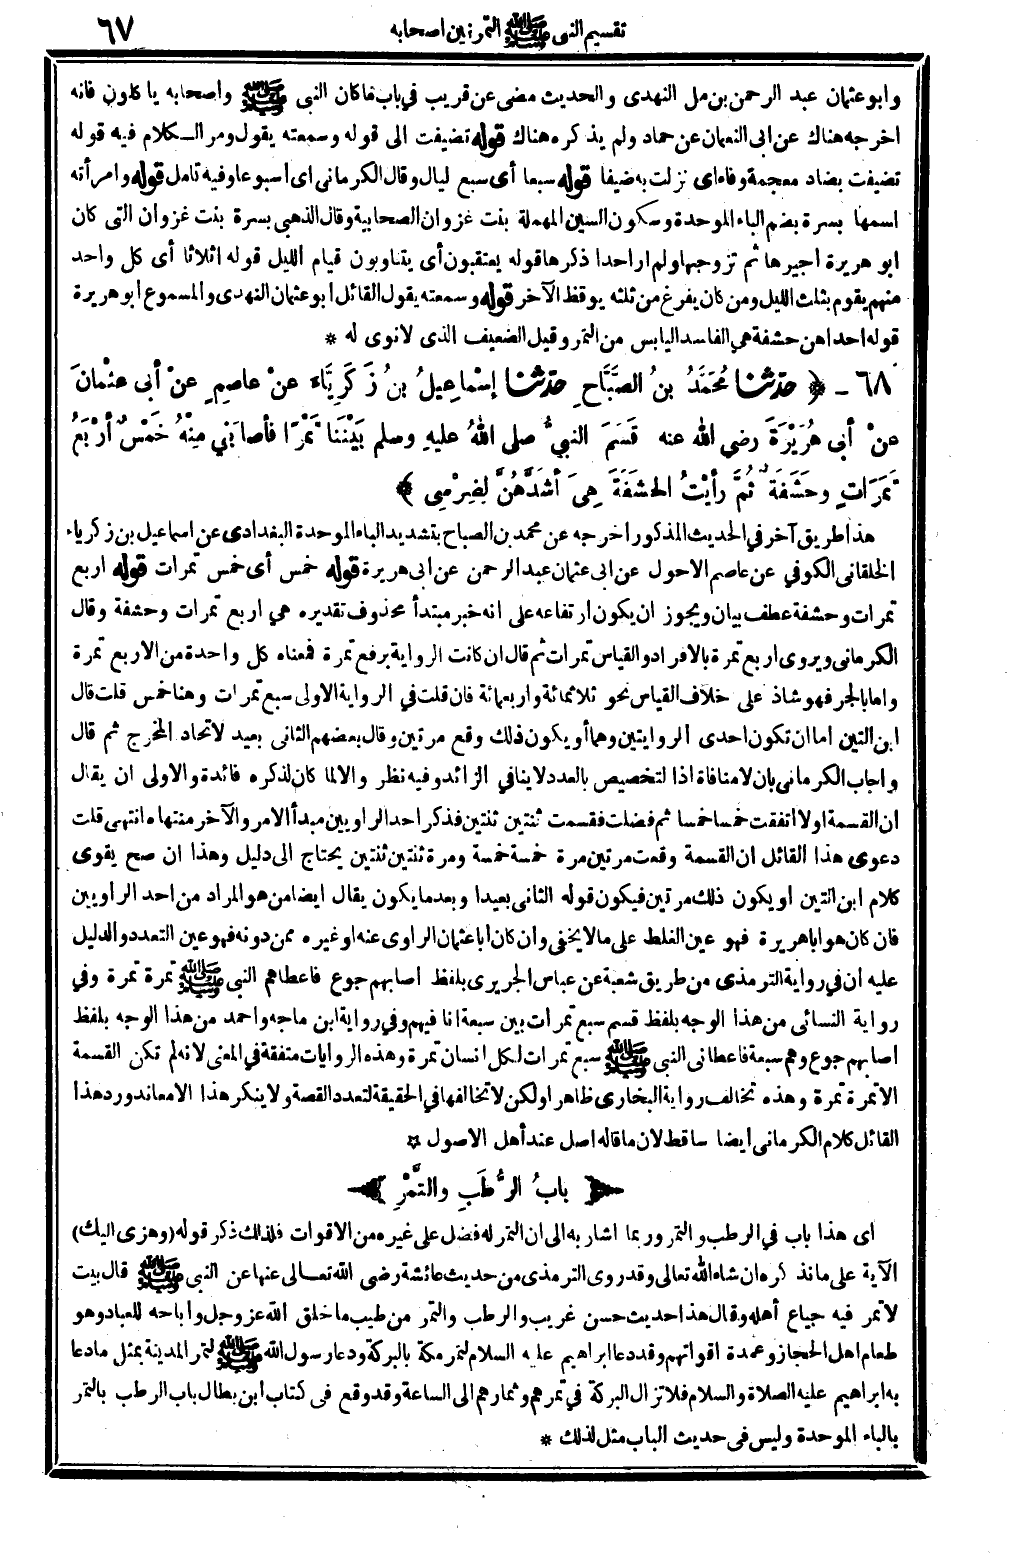 تقسيم النبى ﷺ التمر بين اصحابه ٦٧
وابو عثمان عبد الرحمن بن مل النهدى والحديث مضى عن قريب في باب ما كان النبى ﷺ واصحابه ياكلون فانه
اخرجه هناك عن ابى النعمان عن حماد ولم يذكره هناك قوله تضيفت الى قوله وسمعته يقول ومر الكلام فيه قوله
تضيفت بضاد معجمة وفاء اى نزلت به ضيفا قوله سبعا أى سبع ليال وقال الكرمانى اى اسبوعا وفيه تامل قوله وامرأته
اسمها بسرة بضم الباء الموحدة وسكون السين المهملة بنت غزوان الصحابية وقال الذهبى بسرة بنت غزوان التى كان
ابو هريرة اجيرها ثم تزوجها ولم ار احدا ذكرها قوله يعتقبون أى يتناوبون قيام الليل قوله اثلاثا أى كل واحد
منهم يقوم بثلث الليل ومن كان يفرغ من ثلثه يوقظ الآخر قوله وسمعته يقول القائل ابو عثمان النهدى والمسموع ابو هريرة
قوله احداهن حشفة هي الفاسد اليابس من التمر وقيل الضعيف الذى لا نوى له *
٦٨ - ﴿ حَدَّثَنا مُحَمَّدُ بنُ الصَّبَّاحِ حَدَّثَنا إسْماعِيلُ بنُ زَكَرِيَّاءَ عنْ عاصِمٍ عنْ أبى عثْمانَ
عنْ أبى هُرَيْرَةَ رضي الله عنه قَسَمَ النبيُّ صلى اللهُ عليهِ وسلم بَيْنَنا تَمْرًا فأصابَني مِنْهُ خَمْسٌ أرْبَعُ
تَمَرَاتٍ وحَشَفَةٌ ثُمَّ رأيْتُ الحَشَفَةَ هِىَ أشَدُّهُنَّ لِضِرْسِى ﴾
هذا طريق آخر في الحديث المذكور اخرجه عن محمد بن الصباح بتشديد الباء الموحدة البغدادى عن اسماعيل بن زكرياء
الخلقانى الكوفي عن عاصم الاحول عن ابى عثمان عبد الرحمن عن ابى هريرة قوله خمس أى خمس تمرات قوله اربع
تمرات وحشفة عطف بيان ويجوز ان يكون ارتفاعه على انه خبر مبتدأ محذوف تقديره هي اربع تمرات وحشفة وقال
الكرمانى ويروى اربع تمرة بالافراد والقياس تمرات ثم قال ان كانت الرواية برفع تمرة فمعناه كل واحدة من الاربع تمرة
واما بالجر فهو شاذ على خلاف القياس نحو ثلاثمائة واربعمائة فان قلت في الرواية الاولى سبع تمرات وهنا خمس قلت قال
ابن التين اما ان تكون احدى الروايتين وهما أو يكون ذلك وقع مرتين وقال بعضهم الثانى بعيد لاتحاد المخرج ثم قال
واجاب الكرمانى بان لا منافاة اذا لتخصيص بالعدد لا ينافي الزائد وفيه نظر والا لما كان لذكره فائدة والاولى ان يقال
ان القسمة اولا اتفقت خمسا خمسا ثم فضلت فقسمت ثنتين ثنتين فذكر احد الراويين مبدأ الامر والآخر منتهاه انتهى قلت
دعوى هذا القائل ان القسمة وقعت مرتين مرة خمسة خمسة ومرة ثنتين ثنتين يحتاج الى دليل وهذا ان صح يقوى
كلام ابن التين او يكون ذلك مرتين فيكون قوله الثانى بعيدا وبعد ما يكون يقال ايضا من هو المراد من احد الراويين
فان كان هو ابا هريرة فهو عين الغلط على ما لا يخفى وان كان ابا عثمان الراوى عنه او غيره ممن دونه فهو عين التعدد والدليل
عليه أن في رواية الترمذى من طريق شعبة عن عباس الجريرى بلفظ اصابهم جوع فاعطاهم النبى ﷺ تمرة تمرة وفي
رواية النسائى من هذا الوجه بلفظ قسم سبع تمرات بين سبعة انا فيهم وفي رواية ابن ماجه واحمد من هذا الوجه بلفظ
اصابهم جوع وهم سبعة فاعطانى النبى ﷺ سبع تمرات لكل انسان تمرة وهذه الروايات متفقة في المعنى لانه لم تكن القسمة
الا تمرة تمرة وهذه تخالف رواية البخارى ظاهرا ولكن لا تخالفها في الحقيقة لتعدد القصة ولا ينكر هذا الا معاند ورد هذا
القائل كلام الكرمانى ايضا ساقط لان ما قاله اصل عند أهل الاصول *
﴿ بابُ الرُّطَبِ والتَّمْرِ ﴾
اى هذا باب في الرطب والتمر وربما اشار به الى ان التمر له فضل على غيره من الاقوات فلذلك ذكر قوله (وهزى اليك)
الآية على ما نذكره ان شاء الله تعالى وقد روى الترمذى من حديث عائشة رضى الله تعالى عنها عن النبى ﷺ قال بيت
لا تمر فيه جياع أهله وقال هذا حديث حسن غريب والرطب والتمر من طيب ما خلق الله عز وجل وأباحه للعباد وهو
طعام اهل الحجاز وعمدة اقواتهم وقد دعا ابراهيم عليه السلام لتمر مكة بالبركة ودعا رسول الله ﷺ لتمر المدينة بمثل ما دعا
به ابراهيم عليه الصلاة والسلام فلا تزال البركة في تمرهم وثمارهم الى الساعة وقد وقع فى كتاب ابن بطال باب الرطب بالتمر
بالباء الموحدة وليس فى حديث الباب مثل لذلك *